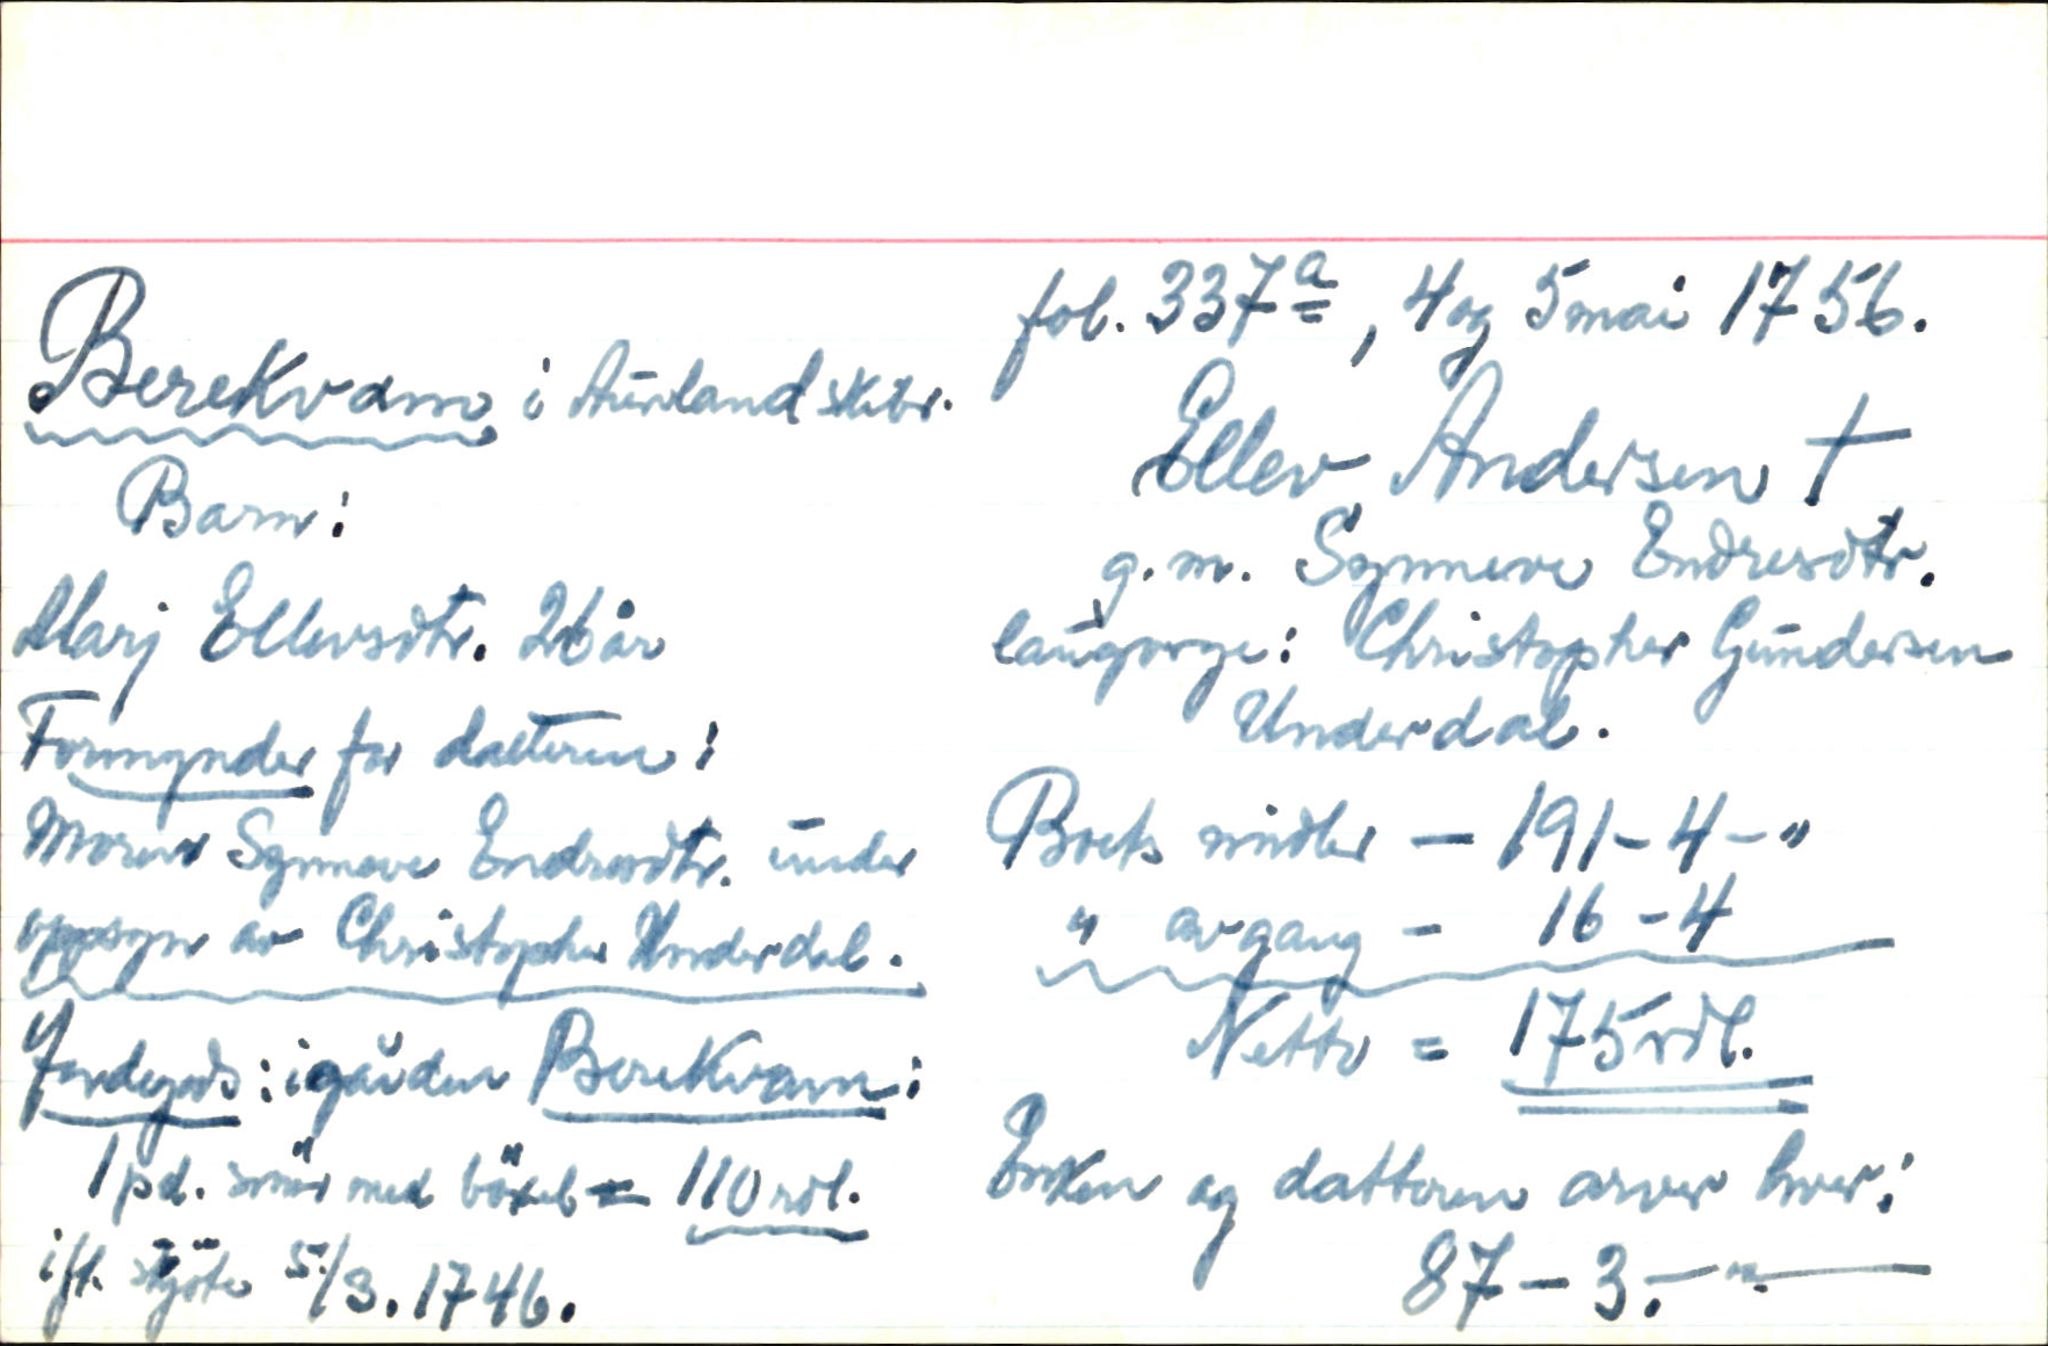 Berekvam i Aurland skibr.
Barn:
Marj Ellevsdtr. 26 år
Formynder for datteren:
Moren Synneve Endresdtr. under
oppsyn av Christopher Underdal.
Jordegods: i gården Berekvam:
1 pd. smör med böxel = 110 rdl.
ifl. skjöte 5/3. 1746.
fol. 337a, 4 og 5 mai 1756.
Ellev Andersen †
g. m. Synneve Endresdtr.
laugverge: Christopher Gundersen
Underdal.
Boets midler - 191 - 4 - "
" avgang - 16 - 4
Netto = 175 rdl.
Enken og datteren arver hver:
87 - 3. - "